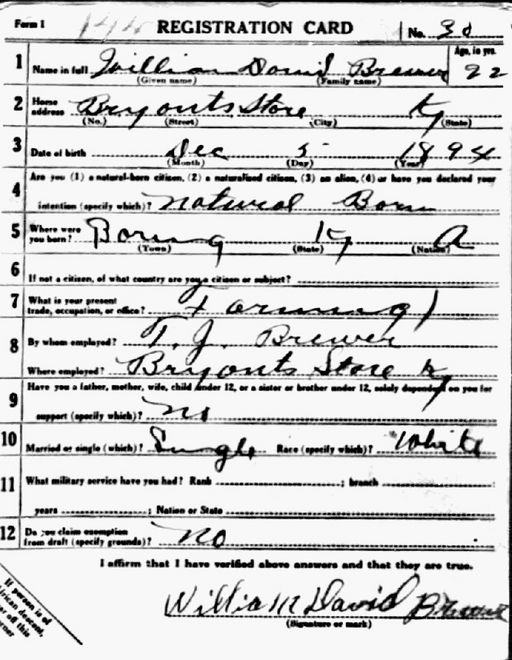 Form 1 REGISTRATION CARD No. 30
1 Name in full William David Brewer Age, in yrs. 22
(Given name) (Family name)
2 Home address Bryonts Store Ky
(No.) (Street) (City) (State)
3 Date of birth Dec 5 1894
(Month) (Day) (Year)
Are you (1) a natural-born citizen, (2) a naturalized citizen, (3) an alien, (4) or have you declared your
4 intention (specify which)? natural Born
5 Where were you born? Boring Ky A
(Town) (State) (Nation)
6 If not a citizen, of what country are you a citizen or subject?
7 What is your present trade, occupation, or office? Farming
8 By whom employed? T. J. Brewer
Where employed? Bryonts Store Ky
Have you a father, mother, wife, child under 12, or a sister or brother under 12, solely dependent on you for
9 support (specify which)? no
10 Married or single (which)? Single Race (specify which)? White
11 What military service have you had? Rank ; branch
years ; Nation or State
12 Do you claim exemption from draft (specify grounds)? No
I affirm that I have verified above answers and that they are true.
William David Brewer
(Signature or mark)
If person is of
African descent,
off this
corner